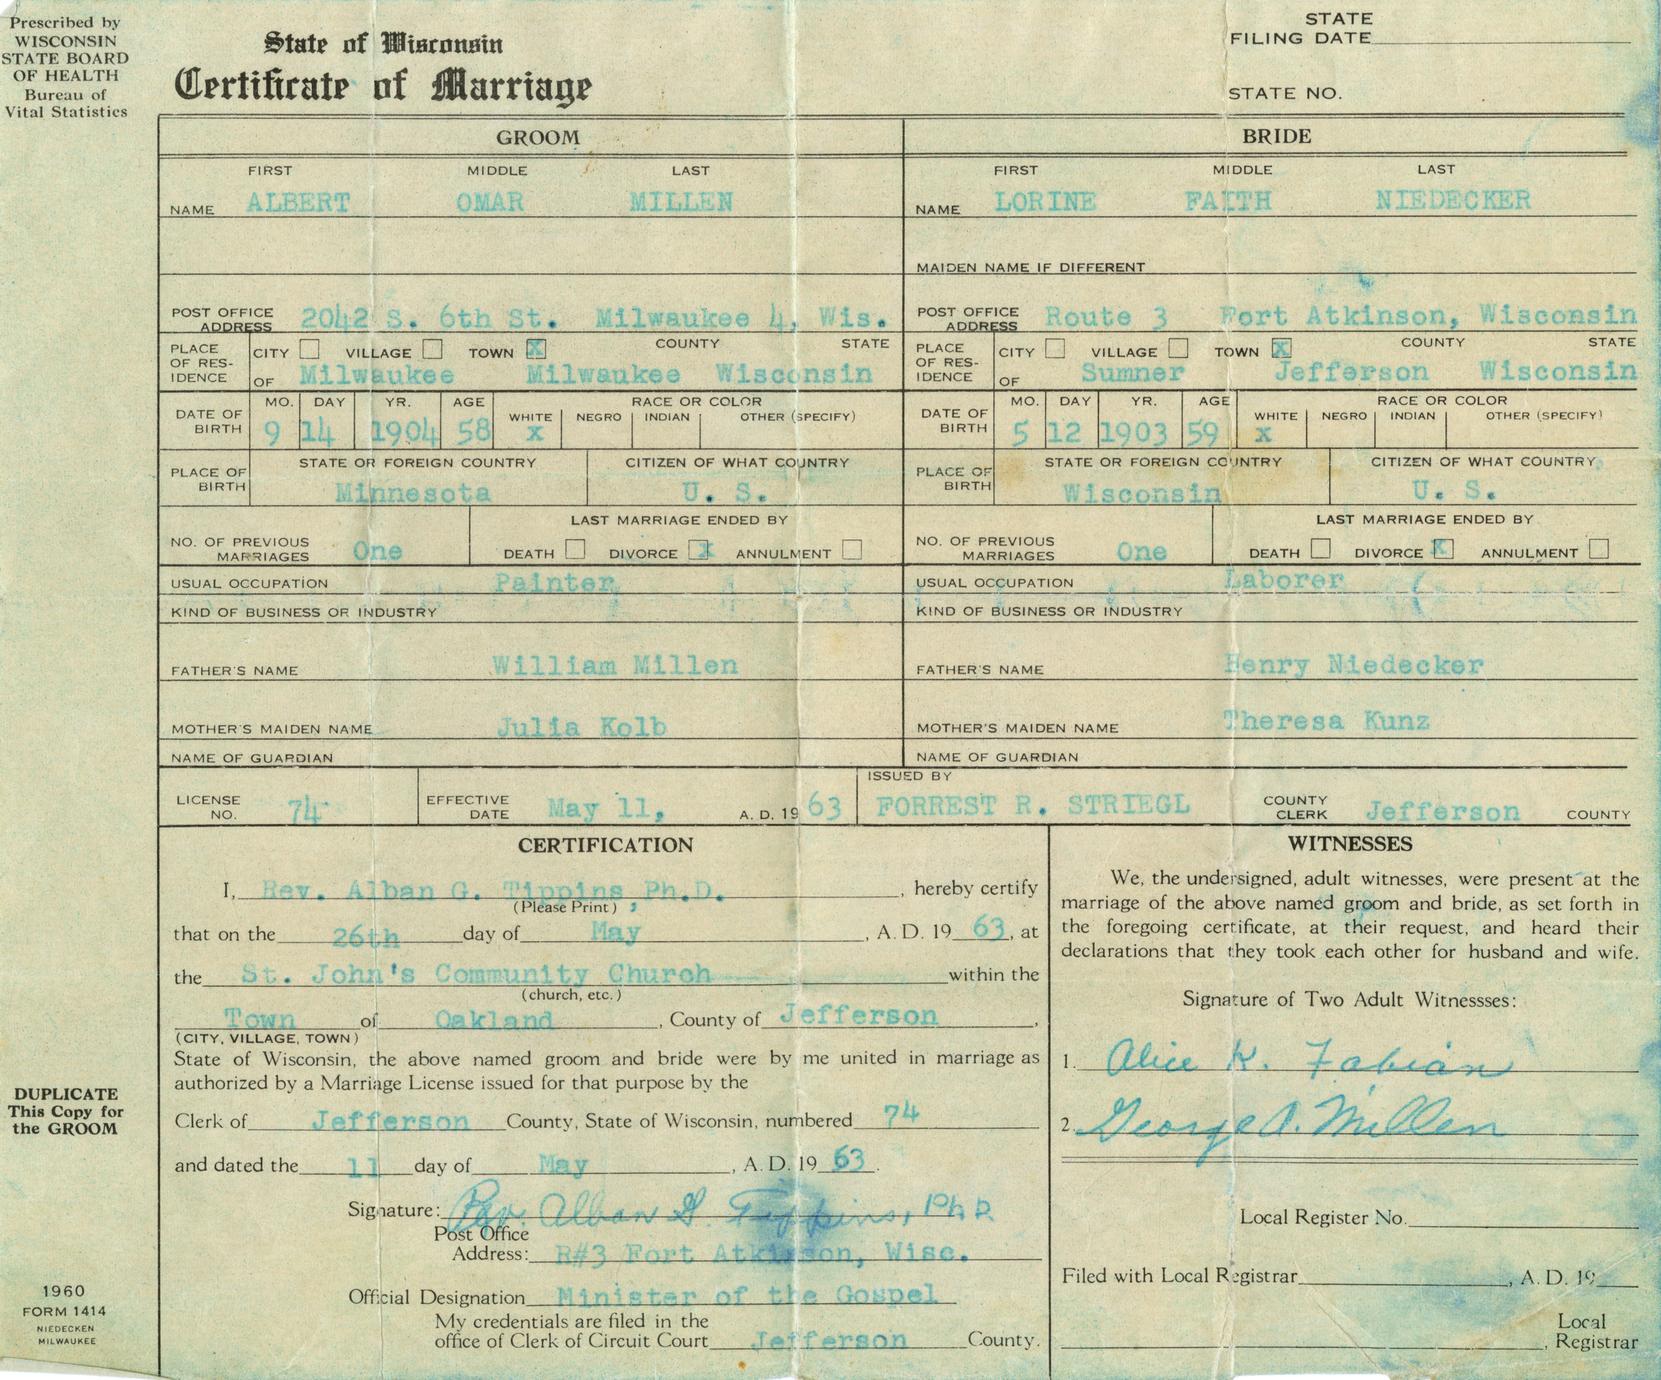 Prescribed by
WISCONSIN
STATE BOARD
OF HEALTH
Bureau of
Vital Statistics
State of Wisconsin
Certificate of Marriage
STATE
FILING DATE
STATE NO.
GROOM
BRIDE
FIRST MIDDLE LAST
NAME ALBERT OMAR MILLEN
FIRST MIDDLE LAST
NAME LORINE FAITH NIEDECKER
MAIDEN NAME IF DIFFERENT
POST OFFICE
ADDRESS 2042 S. 6th St. Milwaukee 4, Wis.
POST OFFICE
ADDRESS Route 3 Fort Atkinson, Wisconsin
PLACE OF RESIDENCE CITY VILLAGE TOWN X COUNTY STATE
OF Milwaukee Milwaukee Wisconsin
PLACE OF RESIDENCE CITY VILLAGE TOWN X COUNTY STATE
OF Sumner Jefferson Wisconsin
DATE OF BIRTH MO. DAY YR. AGE RACE OR COLOR
WHITE NEGRO INDIAN OTHER (SPECIFY)
9 14 1904 58 X
DATE OF BIRTH MO. DAY YR. AGE RACE OR COLOR
WHITE NEGRO INDIAN OTHER (SPECIFY)
5 12 1903 59 X
PLACE OF BIRTH STATE OR FOREIGN COUNTRY CITIZEN OF WHAT COUNTRY
Minnesota U. S.
PLACE OF BIRTH STATE OR FOREIGN COUNTRY CITIZEN OF WHAT COUNTRY
Wisconsin U. S.
LAST MARRIAGE ENDED BY
NO. OF PREVIOUS MARRIAGES One DEATH DIVORCE X ANNULMENT
LAST MARRIAGE ENDED BY
NO. OF PREVIOUS MARRIAGES One DEATH DIVORCE X ANNULMENT
USUAL OCCUPATION Painter
USUAL OCCUPATION Laborer
KIND OF BUSINESS OR INDUSTRY
KIND OF BUSINESS OR INDUSTRY
FATHER'S NAME William Millen
FATHER'S NAME Henry Niedecker
MOTHER'S MAIDEN NAME Julia Kolb
MOTHER'S MAIDEN NAME Theresa Kunz
NAME OF GUARDIAN
NAME OF GUARDIAN
LICENSE NO. 74
EFFECTIVE DATE May 11, A. D. 19 63
ISSUED BY
FORREST R. STRIEGL COUNTY CLERK Jefferson COUNTY
CERTIFICATION
I, Rev. Alban G. Tippins Ph.D. , hereby certify
(Please Print)
that on the 26th day of May , A. D. 19 63, at
the St. John's Community Church within the
(church, etc.)
Town of Oakland , County of Jefferson ,
(CITY, VILLAGE, TOWN)
State of Wisconsin, the above named groom and bride were by me united in marriage as
authorized by a Marriage License issued for that purpose by the
Clerk of Jefferson County, State of Wisconsin, numbered 74
and dated the 11 day of May , A. D. 19 63.
Signature: Rev. Alban G. Tippins, Ph D
Post Office
Address: R#3 Fort Atkinson, Wisc.
Official Designation Minister of the Gospel
My credentials are filed in the
office of Clerk of Circuit Court Jefferson County.
WITNESSES
We, the undersigned, adult witnesses, were present at the
marriage of the above named groom and bride, as set forth in
the foregoing certificate, at their request, and heard their
declarations that they took each other for husband and wife.
Signature of Two Adult Witnessses:
1. Alice K. Fabian
2. George A. Millen
Local Register No.
Filed with Local Registrar , A. D. 19
Local
, Registrar
DUPLICATE
This Copy for
the GROOM
1960
FORM 1414
NIEDECKEN
MILWAUKEE